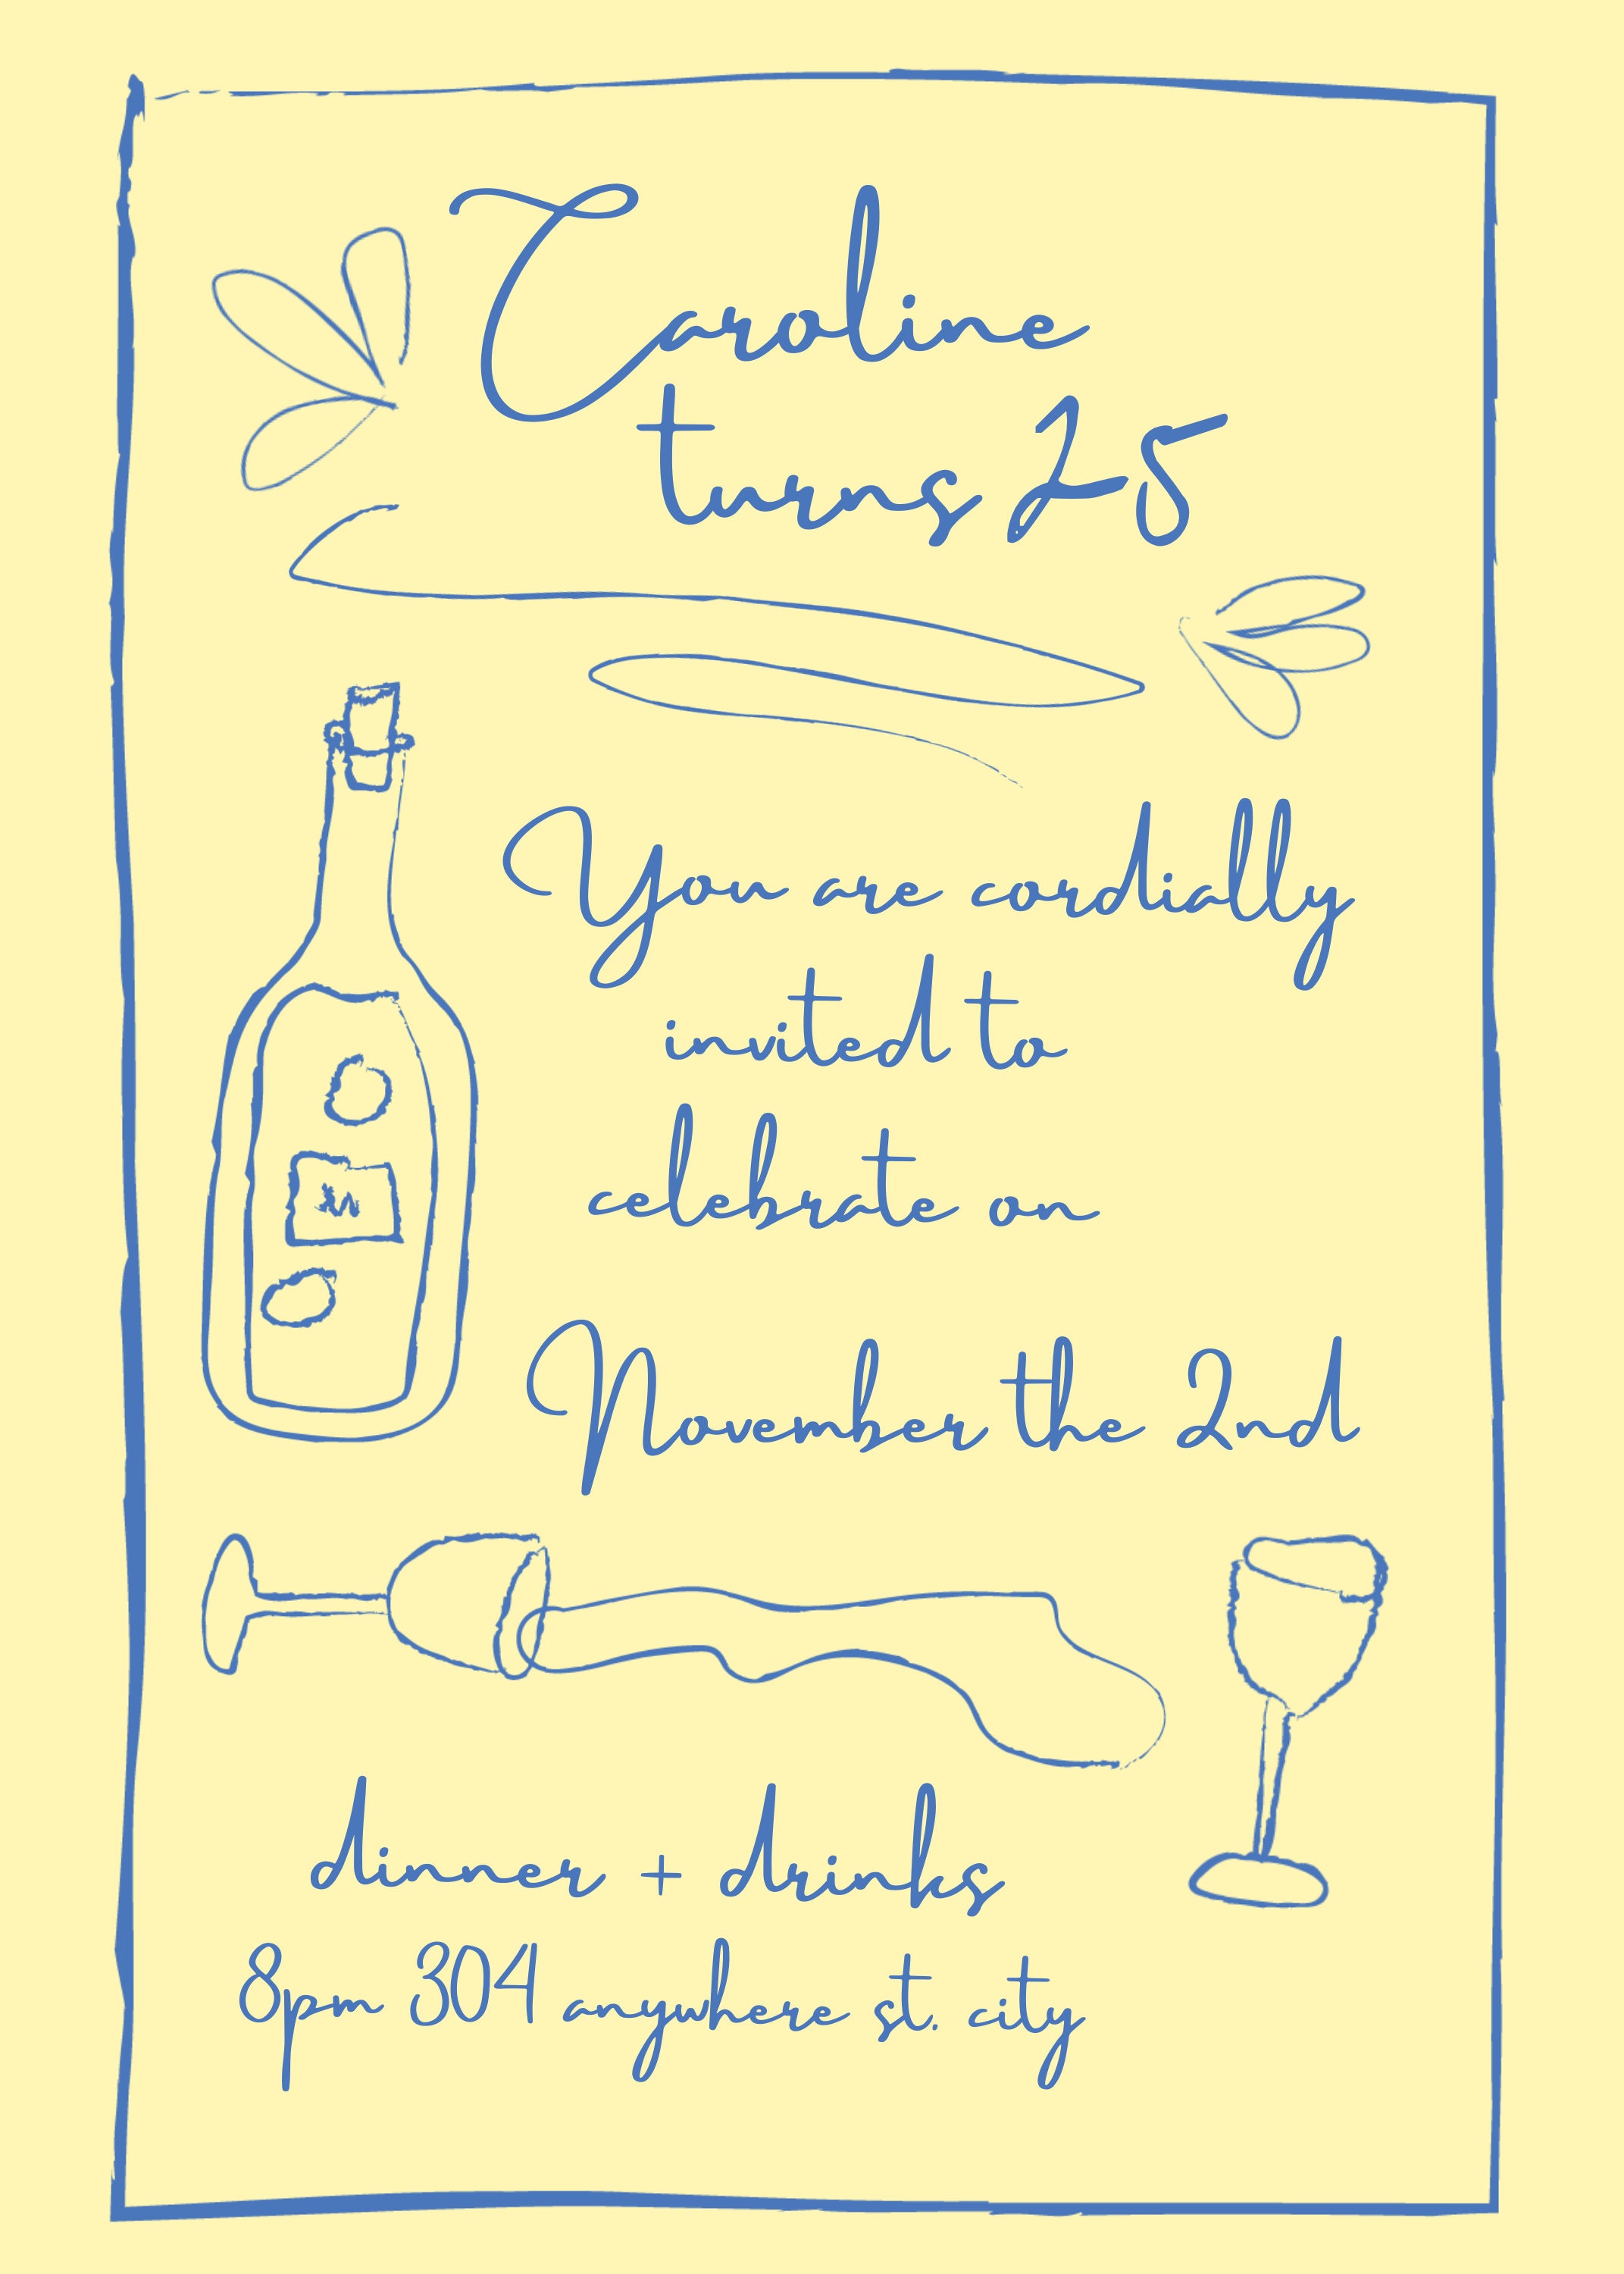 Caroline
turns 25
You are cordially
invited to
celebrate on
November the 2nd
dinner + drinks
8pm 304 anywhere st. city